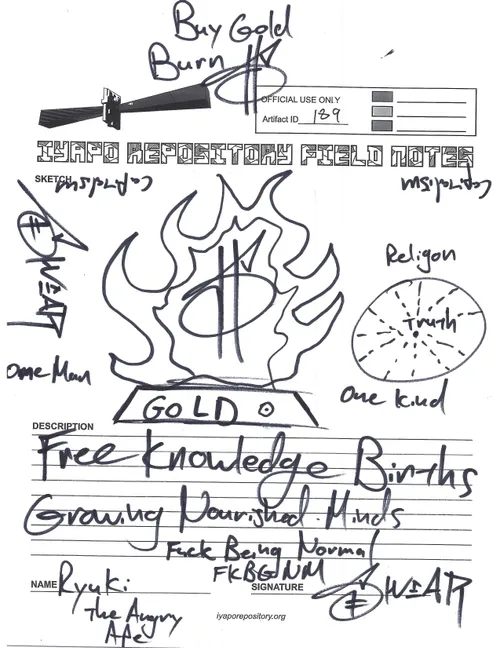 Buy Gold
Burn
OFFICIAL USE ONLY
Artifact ID 189
IYAPO REPOSITORY FIELD NOTES
SKETCH
Capitalism
Capitalism
Religon
Truth
One Man
One Kind
GOLD
DESCRIPTION
Free Knowledge Births
Growing Nourished Minds
Fuck Being Normal
FKBGNM
NAME Ryuki
The Angry
Ape
SIGNATURE
iyaporepository.org